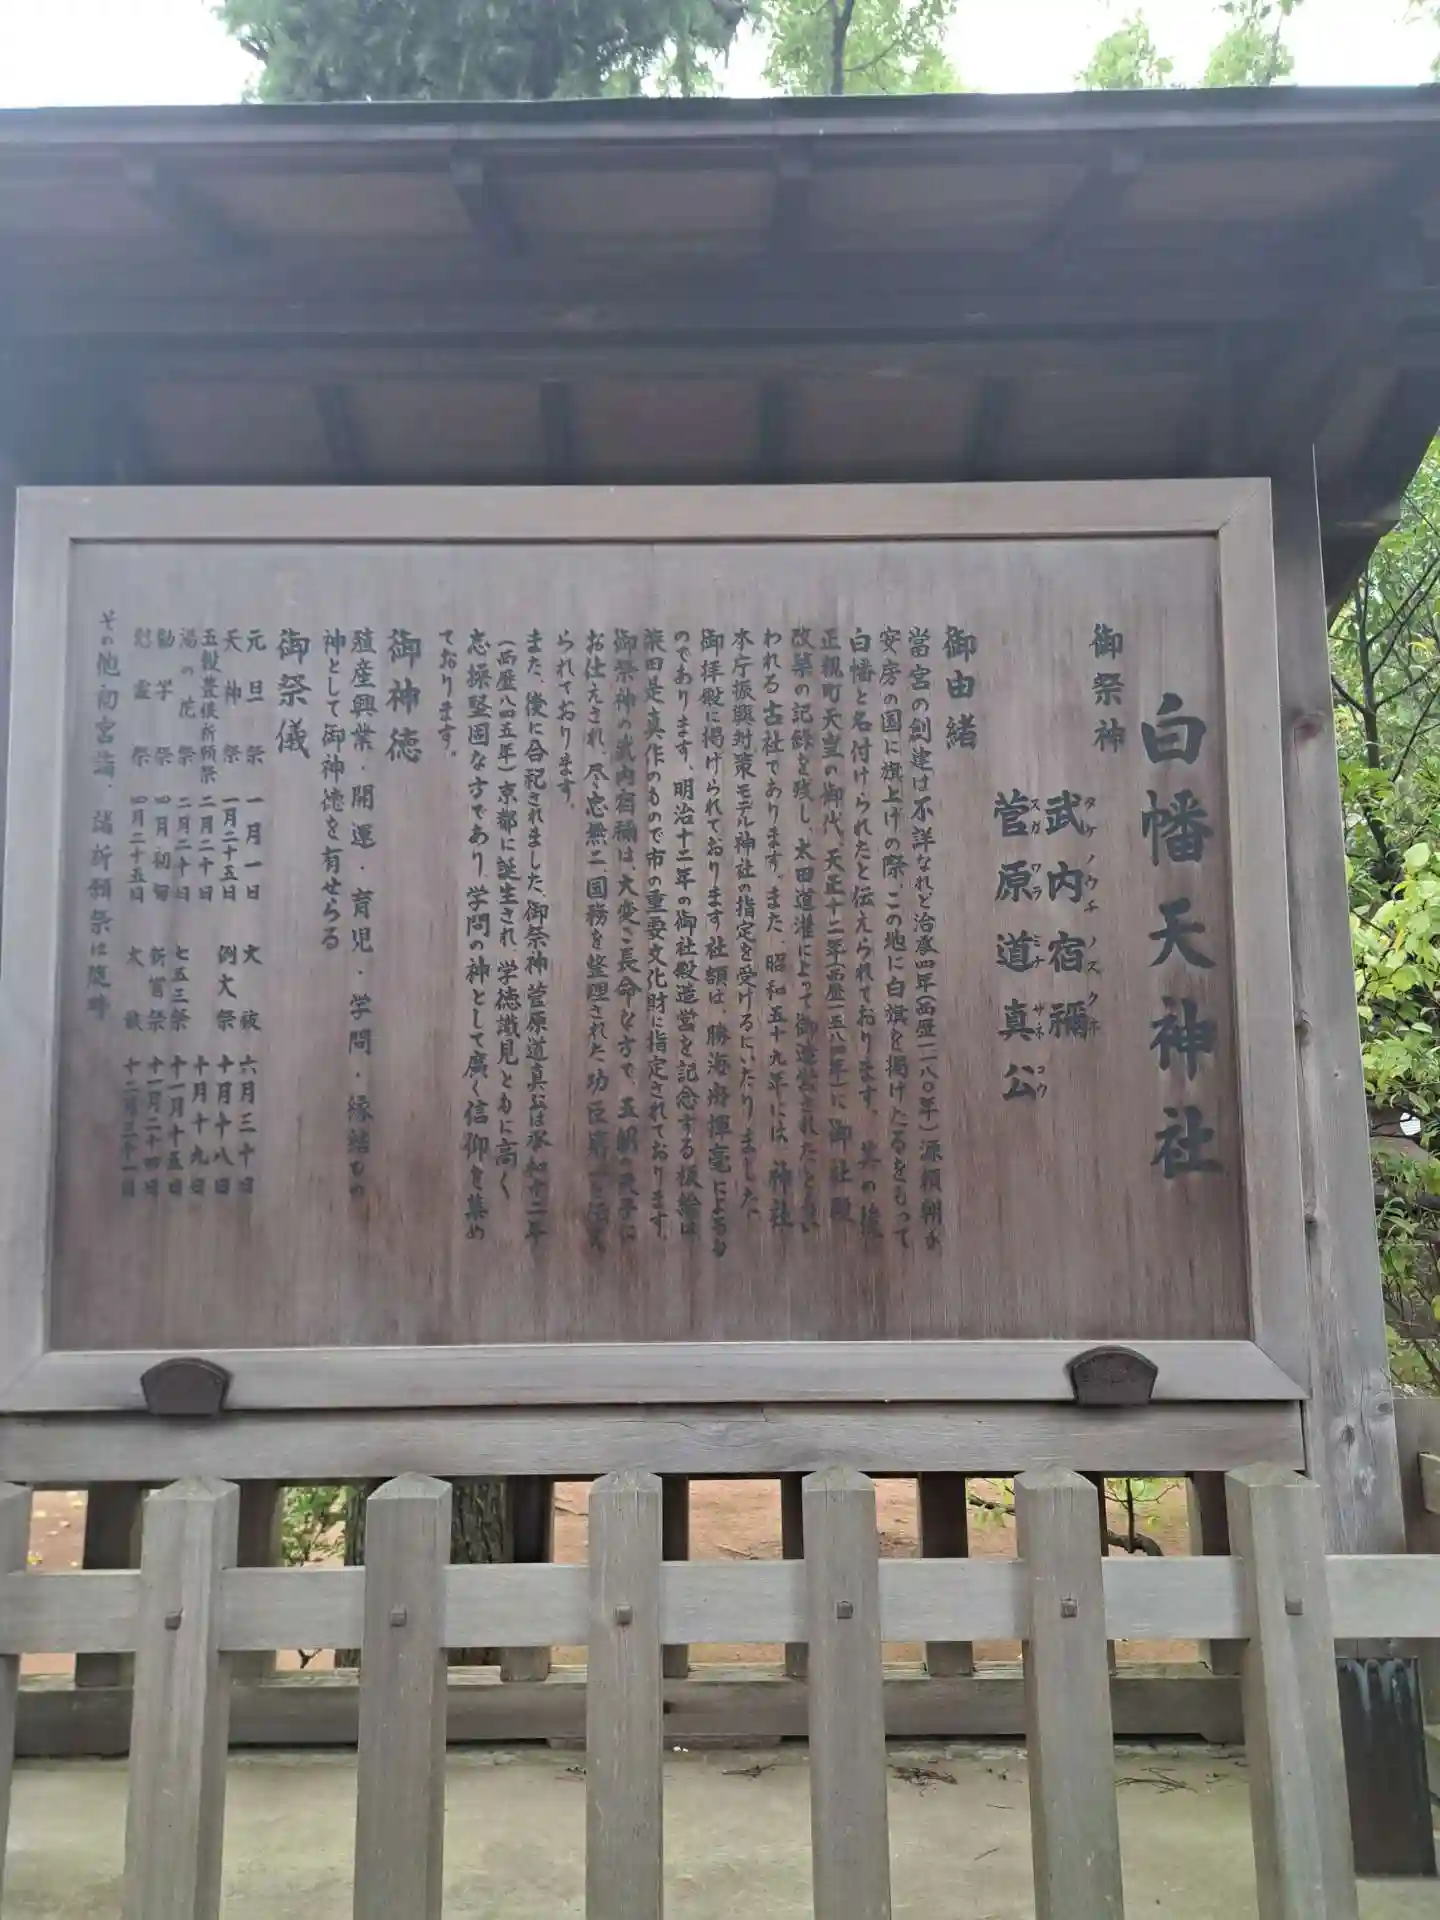 白幡天神社
御祭神
武内宿禰
タケノウチノスクネ
菅原道真公
スガワラミチザネコウ
御由緒
當宮の創建は不詳なれど治承四年(西暦一一八〇年)源頼朝が
安房の国に旗上げの際、この地に白旗を掲げたるをもって
白幡と名付けられたと伝えられております。其の後
正親町天皇の御代、天正十二年(西暦一五八四年)に御社殿
改築の記録を残し、太田道灌によって御造営されたとも
われる古社であります。また、昭和五十九年には、神社
本庁振興対策モデル神社の指定を受けるにいたりました。
御拝殿に掲げられております社額は、勝海舟揮毫によるも
のであります。明治十二年の御社殿造営を記念する板絵は
柴田是真作のもので市の重要文化財に指定されております。
御祭神の武内宿禰は、大変ご長命な方で、五朝の天子に
お仕えされ、尽忠無二、国務を整理された功臣
られております。
また、後に合祀されました、御祭神菅原道真公は承和十二年
(西暦八四五年)京都に誕生され、学徳識見ともに高く
志操堅固な方であり、学問の神として廣く信仰を集め
ております。
御神徳
殖産興業・開運・育児・学問・縁結びの
神として御神徳を有せらる
御祭儀
元旦祭 一月一日 大祓 六月三十日
天神祭 一月二十五日 例大祭 十月十八日
五穀豊穣祈願祭 二月二十日 十月十九日
湯の花祭 二月二十日 七五三祭 十一月十五日
勧学祭 四月初旬 新嘗祭 十一月二十四日
慰霊祭 四月二十五日 大祓 十二月三十一日
その他初宮詣、諸祈願祭は随時